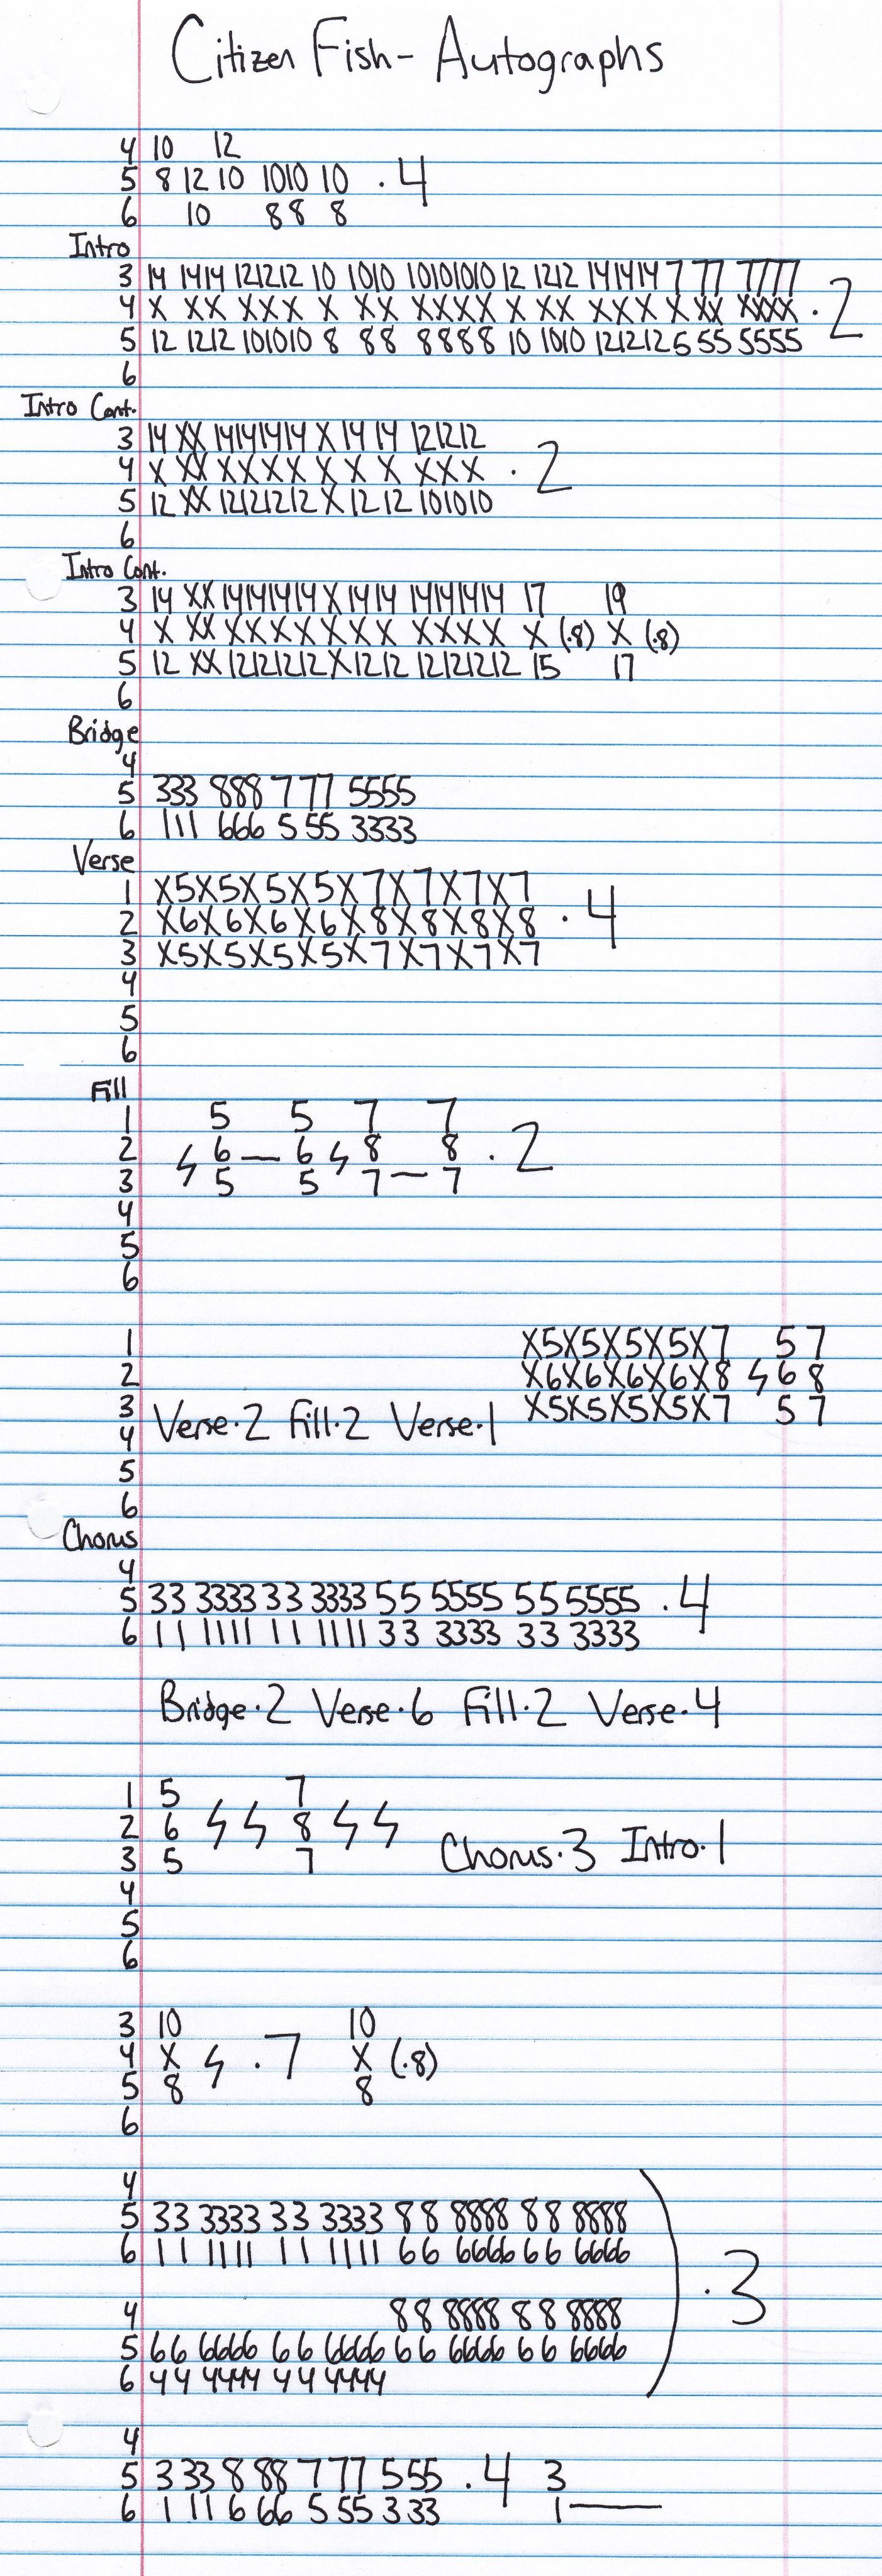 Citizen Fish - Autographs
4 10 12
5 8 12 10 1010 10 . 4
6 10 88 8
Intro
3 14 1414 121212 10 1010 10101010 12 1212 141414 7 77 7777
4 X XX XXX X XX XXXX X XX XXX X XX XXXX . 2
5 12 1212 101010 8 88 8888 10 1010 121212 5 55 5555
6
Intro Cont.
3 14 XX 14141414 X 14 14 121212
4 X XX XXXX X X X XXX . 2
5 12 XX 12121212 X 12 12 101010
6
Intro Cont.
3 14 XX 14141414 X 1414 14141414 17 19
4 X XX XXXX X XX XXXX X (.8) X (.8)
5 12 XX 12121212 X 1212 12121212 15 17
6
Bridge
4
5 333 888 777 5555
6 111 666 555 3333
Verse
1 X5X5X5X5X7X7X7X7
2 X6X6X6X6X8X8X8X8 . 4
3 X5X5X5X5X7X7X7X7
4
5
6
Fill
1 5 5 7 7
2 ϟ 6 — 6 ϟ 8 8 . 2
3 5 5 7 — 7
4
5
6
1 X5X5X5X5X7 5 7
2 X6X6X6X6X8 ϟ 6 8
3 Verse.2 Fill.2 Verse.1 X5X5X5X5X7 5 7
4
5
6
Chorus
4
5 33 3333 33 3333 55 5555 55 5555 . 4
6 11 1111 11 1111 33 3333 33 3333
Bridge.2 Verse.6 Fill.2 Verse.4
1 5 7
2 6 ϟ ϟ 8 ϟ ϟ Chorus.3 Intro.1
3 5 7
4
5
6
3 10 10
4 X ϟ . 7 X (.8)
5 8 8
6
4
5 33 3333 33 3333 88 8888 88 8888
6 11 1111 11 1111 66 6666 66 6666
. 3
4 88 8888 88 8888
5 66 6666 66 6666 66 6666 66 6666
6 44 4444 44 4444
4
5 3 33 8 88 7 77 555 . 4 3
6 1 11 6 66 5 55 3 33 1 —